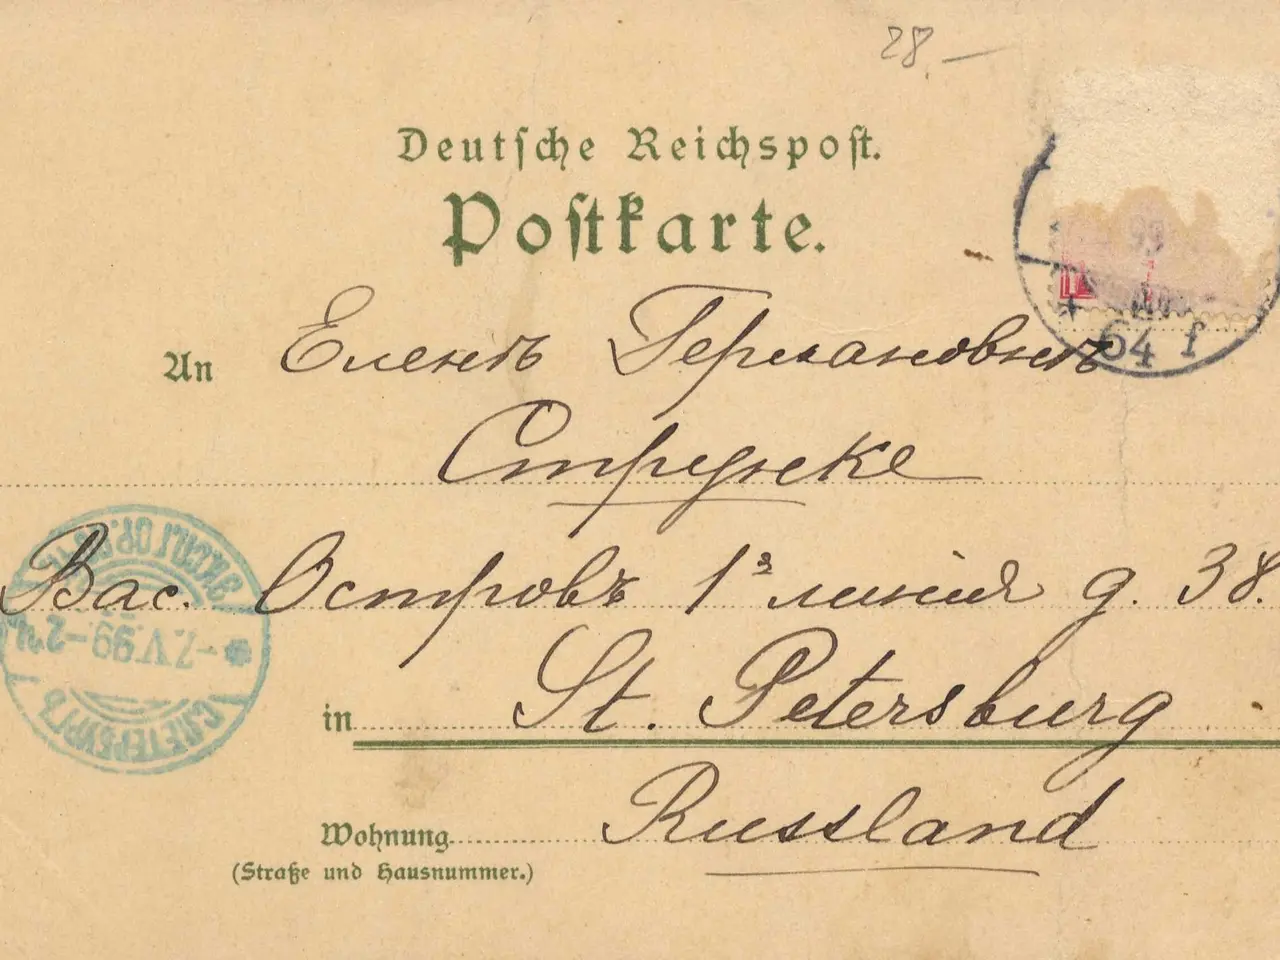 28.—
Deutsche Reichspost.
Postkarte.
99
64 f
An Еленѣ Германовнѣ
Струнске
Вас. Островъ 1я линія д. 38.
7.V.99.-2
С.ПЕТЕРБУРГЪ
in St. Petersburg
Wohnung Russland
(Straße und Hausnummer.)